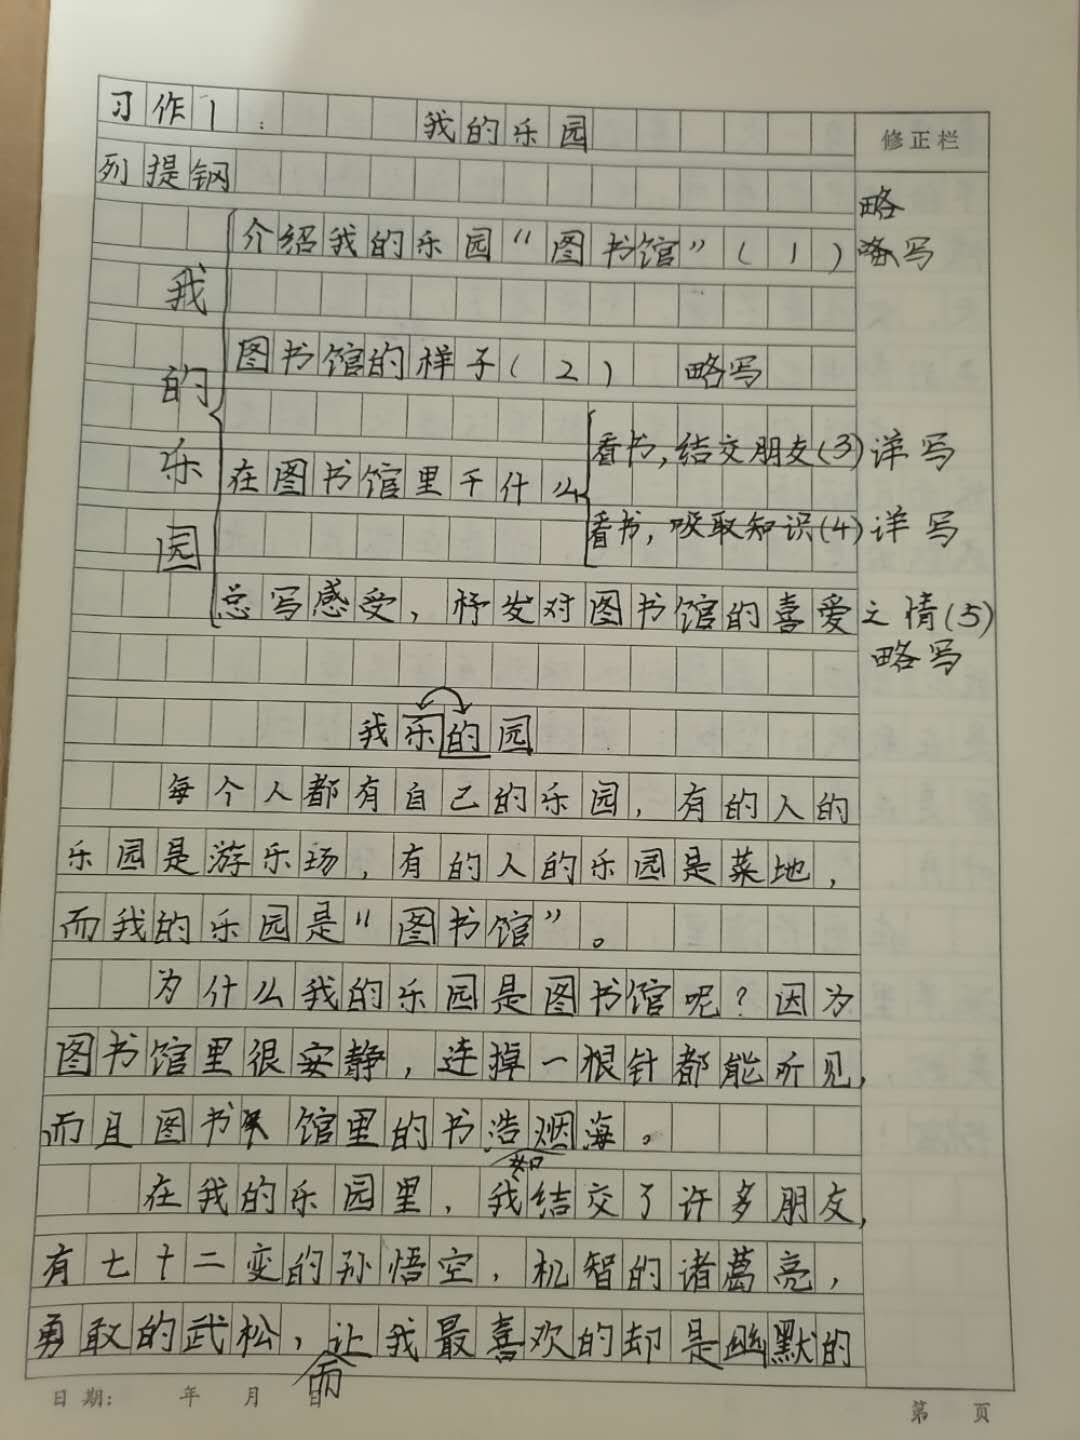 习作1： 我的乐园
修正栏
列提钢
略
介绍我的乐园“图书馆”（1）略写
我的乐园
图书馆的样子（2） 略写
看书，结交朋友（3）详写
在图书馆里干什么
看书，吸取知识（4）详写
总写感受，抒发对图书馆的喜爱之情（5）
略写
我乐的园
每个人都有自己的乐园，有的人的
乐园是游乐场，有的人的乐园是菜地，
而我的乐园是“图书馆”。
为什么我的乐园是图书馆呢？因为
图书馆里很安静，连掉一根针都能听见，
而且图书馆里的书浩烟海。
如
在我的乐园里，我结交了许多朋友，
有七十二变的孙悟空，机智的诸葛亮，
勇敢的武松，让我最喜欢的却是幽默的
而
日期： 年 月 日
第 页